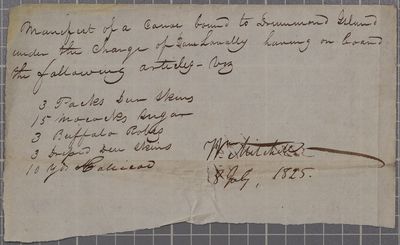 Manifest of a Canoe bound to Drummond Island
under the Charge of Lavally having on board
the following articles - viz
3 Packs Deer Skins
15 Mococks Sugar
3 Buffalo Robes
3 Deer Skins
10 Yds
Wm Mitchell
8 July, 1825.